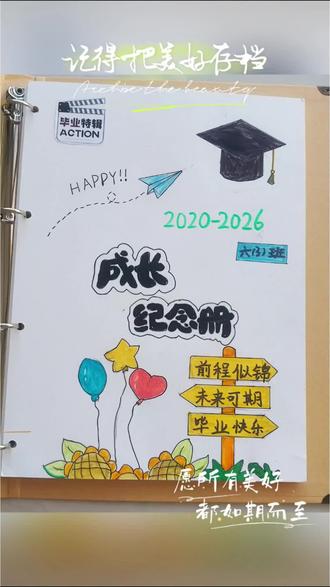 记得把美好存档
Archive the beauty
毕业特辑
ACTION
HAPPY!!
2020-2026
六(3)班
成长
纪念册
前程似锦
未来可期
毕业快乐
愿所有美好
都如期而至